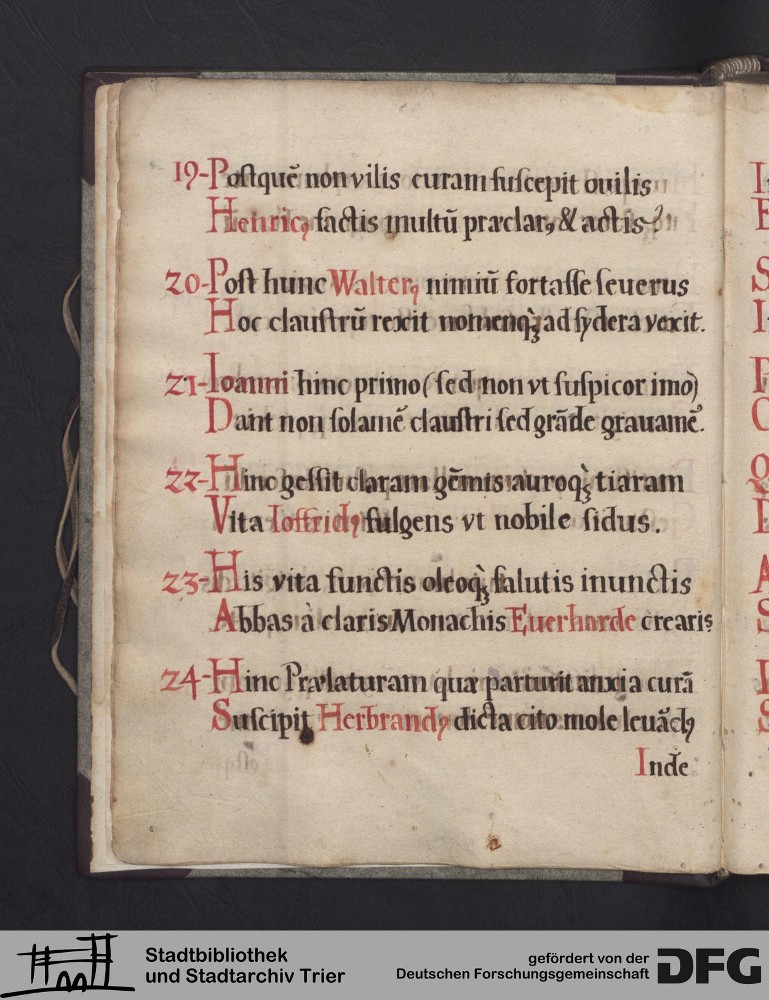 19-Postquē non vilis curam suscepit ouilis
Henricꝰ factis multū præclarꝰ, & actis?
20-Post hunc Walterꝰ nimiū fortasse seuerus
Hoc claustrū rexit nomenqꝫ ad sydera vexit.
21-Ioanni hinc primo (sed non vt suspicor imo)
Dant non solamē claustri sed grāde grauamē.
22-Hinc gessit claram gēmis auroqꝫ tiaram
Vita Ioffridꝰ fulgens vt nobile sidus.
23-His vita functis oleoqꝫ salutis inunctis
Abbas à claris Monachis Euerharde crearis
24-Hinc Prælaturam quæ parturit anxia curā
Suscipit Herbrandꝰ dicta cito mole leuādꝰ
Inde
Stadtbibliothek
und Stadtarchiv Trier
gefördert von der
Deutschen Forschungsgemeinschaft
DFG